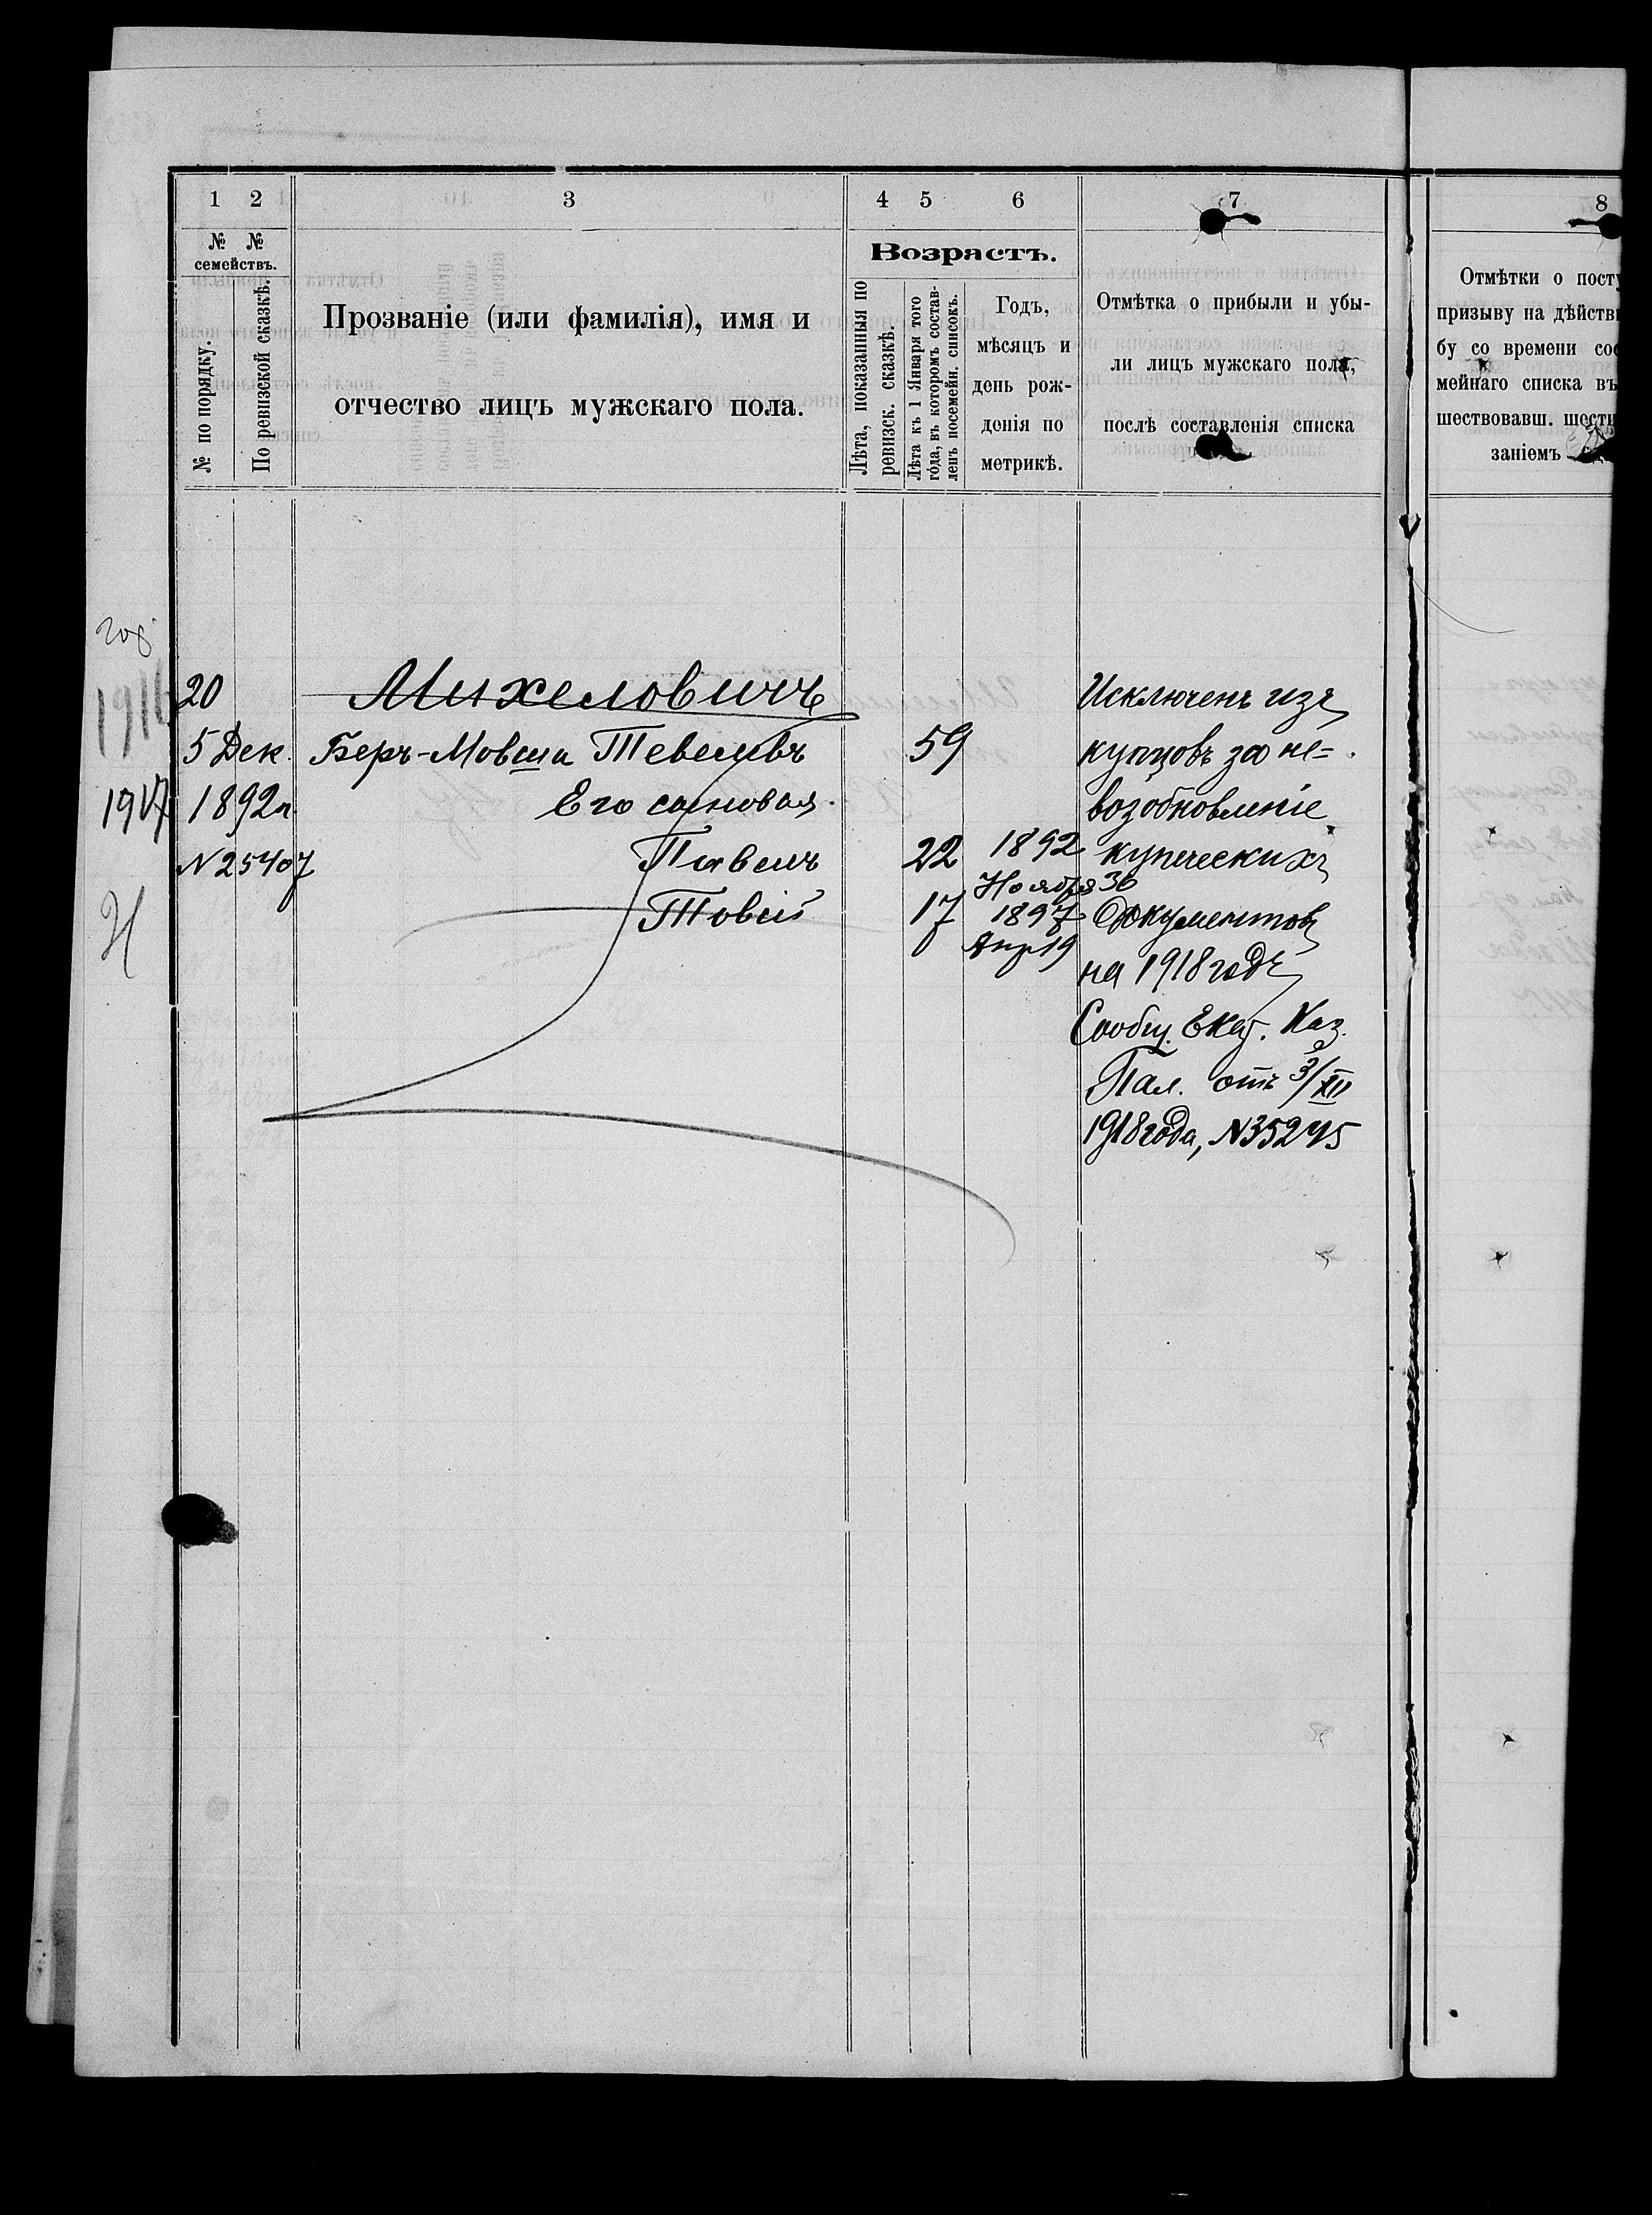 1 2 3 4 5 6 7 8
№ № семействъ.
№ по порядку.
По ревизской сказкѣ.
Прозваніе (или фамилія), имя и
отчество лицъ мужскаго пола.
Возрастъ.
Лѣта, показанныя по
ревизск. сказкѣ.
Лѣта къ 1 Января того
года, въ которомъ состав-
ленъ посемейн. списокъ.
Годъ,
мѣсяцъ и
день рож-
денія по
метрикѣ.
Отмѣтка о прибыли и убы-
ли лицъ мужскаго пола,
послѣ составленія списка
Отмѣтки о посту
призыву на дѣйстви
бу со времени сос
мейнаго списка въ
шествовавш. шести
заніемъ
год
1916
1917
20
5 Дек.
1892г.
№25407
Михеловичъ
Беръ-Мовша Тевелевъ 59
Его сыновья.
Павелъ 22 1892
Ноября 30
Товій 17 1897
Апр 19
Исключенъ изъ
купцовъ за не=
возобновленіе
купеческихъ
документовъ
на 1918 годъ
Сообщ. Екат. Каз.
Пал. отъ 3/XII
1918 года, №35245